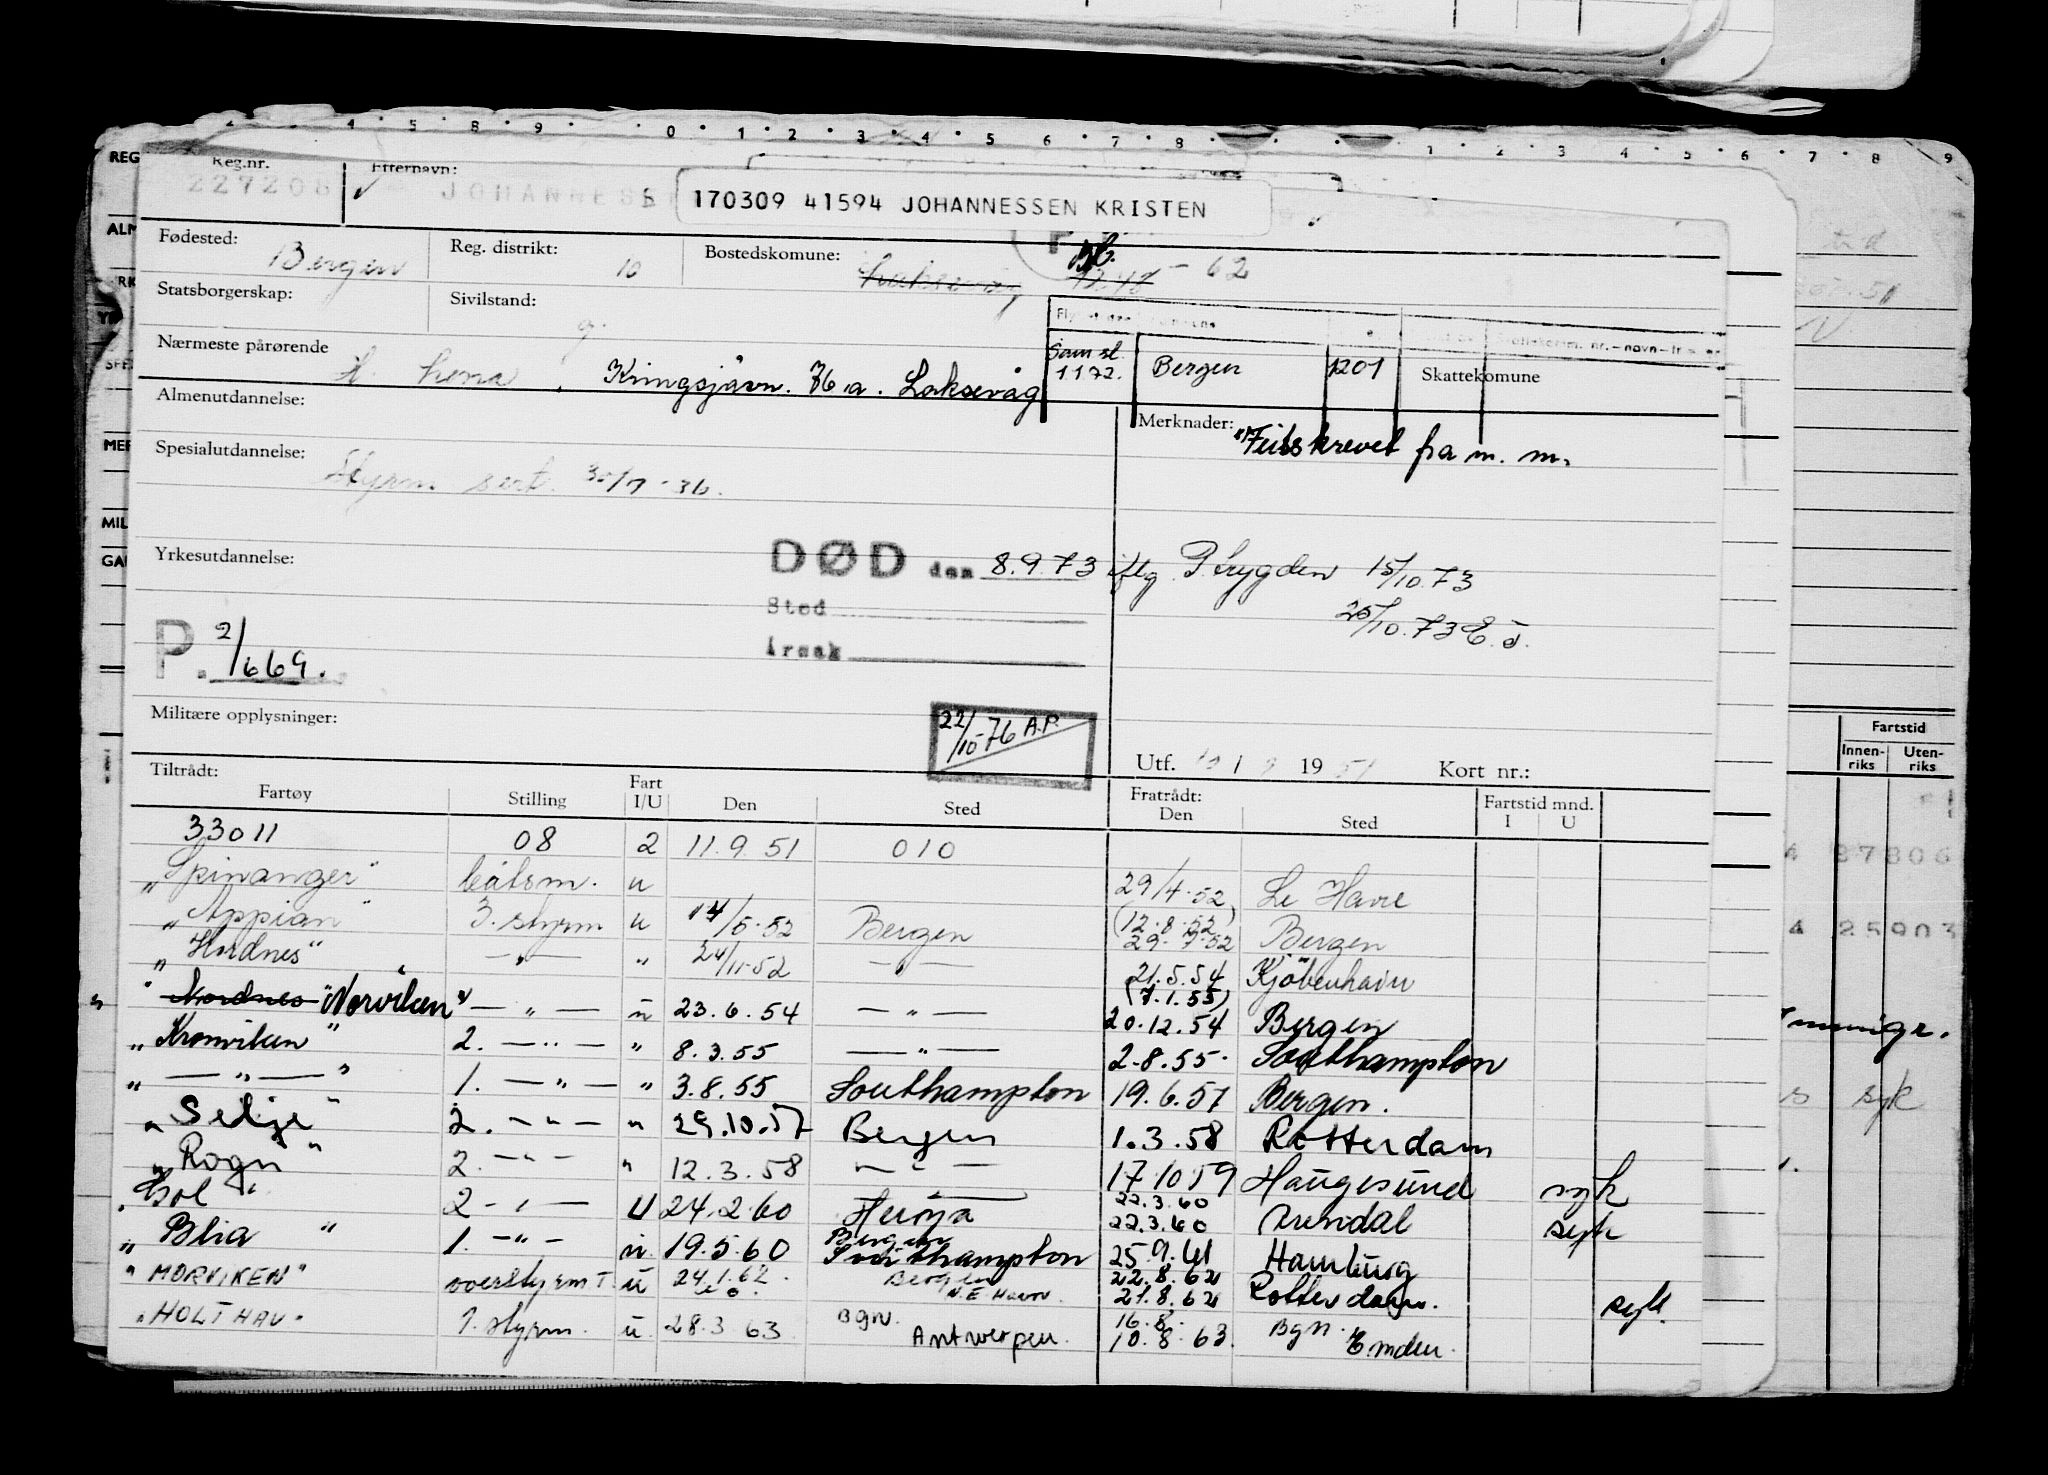 4 · 5 · 8 · 9 · 0 · 1 · 2 · 3 · 4 · 5 · 6 · 7 · 8 · 1 · 2 · 3 · 4 · 5 · 6 · 7 · 8 · 9
REG
Reg.nr. Etternavn:
227208 JOHANNES 170309 41594 JOHANNESSEN KRISTEN
ALM
Fødested: Bergen Reg. distrikt: 10 Bostedskomune: Laksevåg - 62
Statsborgerskap: Sivilstand: g.
Nærmeste pårørende Kringsjåvn. 76 a. Laksevåg
Sam sl. 1172. Bergen 1201 Skattekomune
Almenutdannelse: Merknader: Feilskrevet fra m. m.
Spesialutdannelse: Styrm sert. 30/7-36.
MIL
Yrkesutdannelse: DØD den 8.9.73 iflg. P. trygden 15/10.73
Sted 25/10.73
Årsak
P. 2/669.
Militære opplysninger: 22/10-76 A.P.
Utf. 19 51 Kort nr.:
Tiltrådt: Fratrådt: Fartstid mnd.
Fartøy Stilling Fart I/U Den Sted Den Sted I U
Fartstid
Innen-riks Uten-riks
33011 08 2 11.9.51 010
"Spinanger" båtsm. u 29/4.52 Le Havre
"Appian" 3. styrm u 14/5.52 Bergen (12.8.52) 29.7.52 Bergen
"Hordnes" — " — " 24/11-52 — " — 21.5.54 Kjöbenhavn
" Nordnes "Norviken" — " — u 23.6.54 — " — (7.1.55) 20.12.54 Bergen
"Kronviken" 2. — " — " 8.3.55 — " — 2-8.55. Southampton
" — " — " 1. — " — " 3.8.55 Southampton 19.6.57 Bergen.
"Selje" 2. — " — " 29.10.57 Bergen 1.3.58 Rotterdam
"Rogn" 2. — " — " 12.3.58 — " — 17.10.59 Haugesund syk
"Sol" 2 - " — U 24.2.60 Herøya 22.3.60 22.3.60 Arendal syk
"Blia" 1. — " — u. 19.5.60 Bergen Southampton 25.9.61 Hamburg
"MORVIKEN" overstyrm T. u 24.1.62. Bergen N.E. Havn. 22.8.62 21.8.62 Rotterdam. syk.
"HOLTHAV" 1. styrm. u. 28.3 63 Bgn. Antwerpen. 16.8. 10.8.63. Bgn. Emden.
4 87806
4 25903
syk